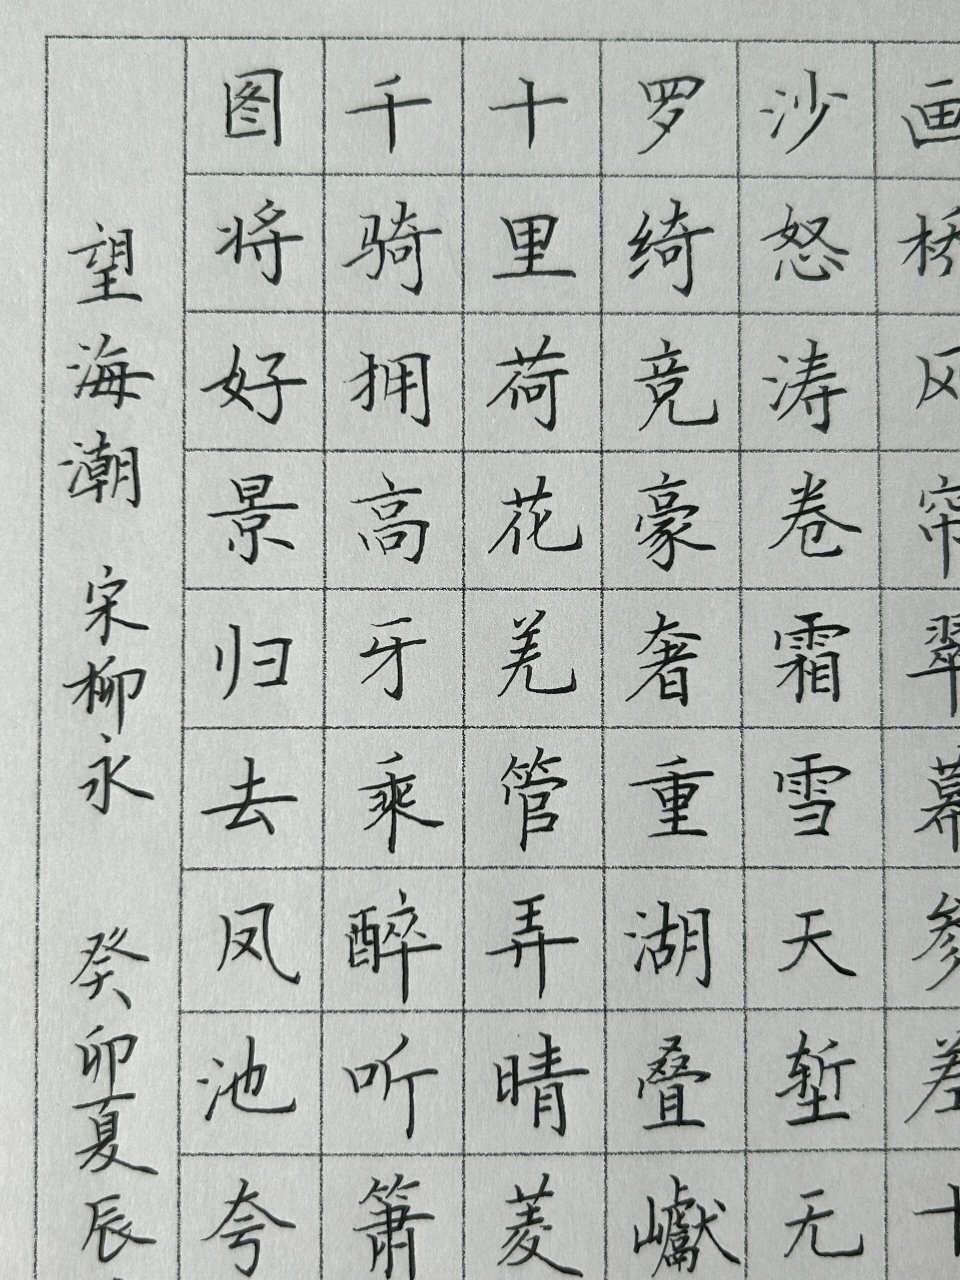 画桥风帘翠幕参差十
沙怒涛卷霜雪天堑无
罗绮竞豪奢重湖叠巘
十里荷花羌管弄晴菱
千骑拥高牙乘醉听箫
图将好景归去凤池夸
望海潮 宋柳永 癸卯夏辰